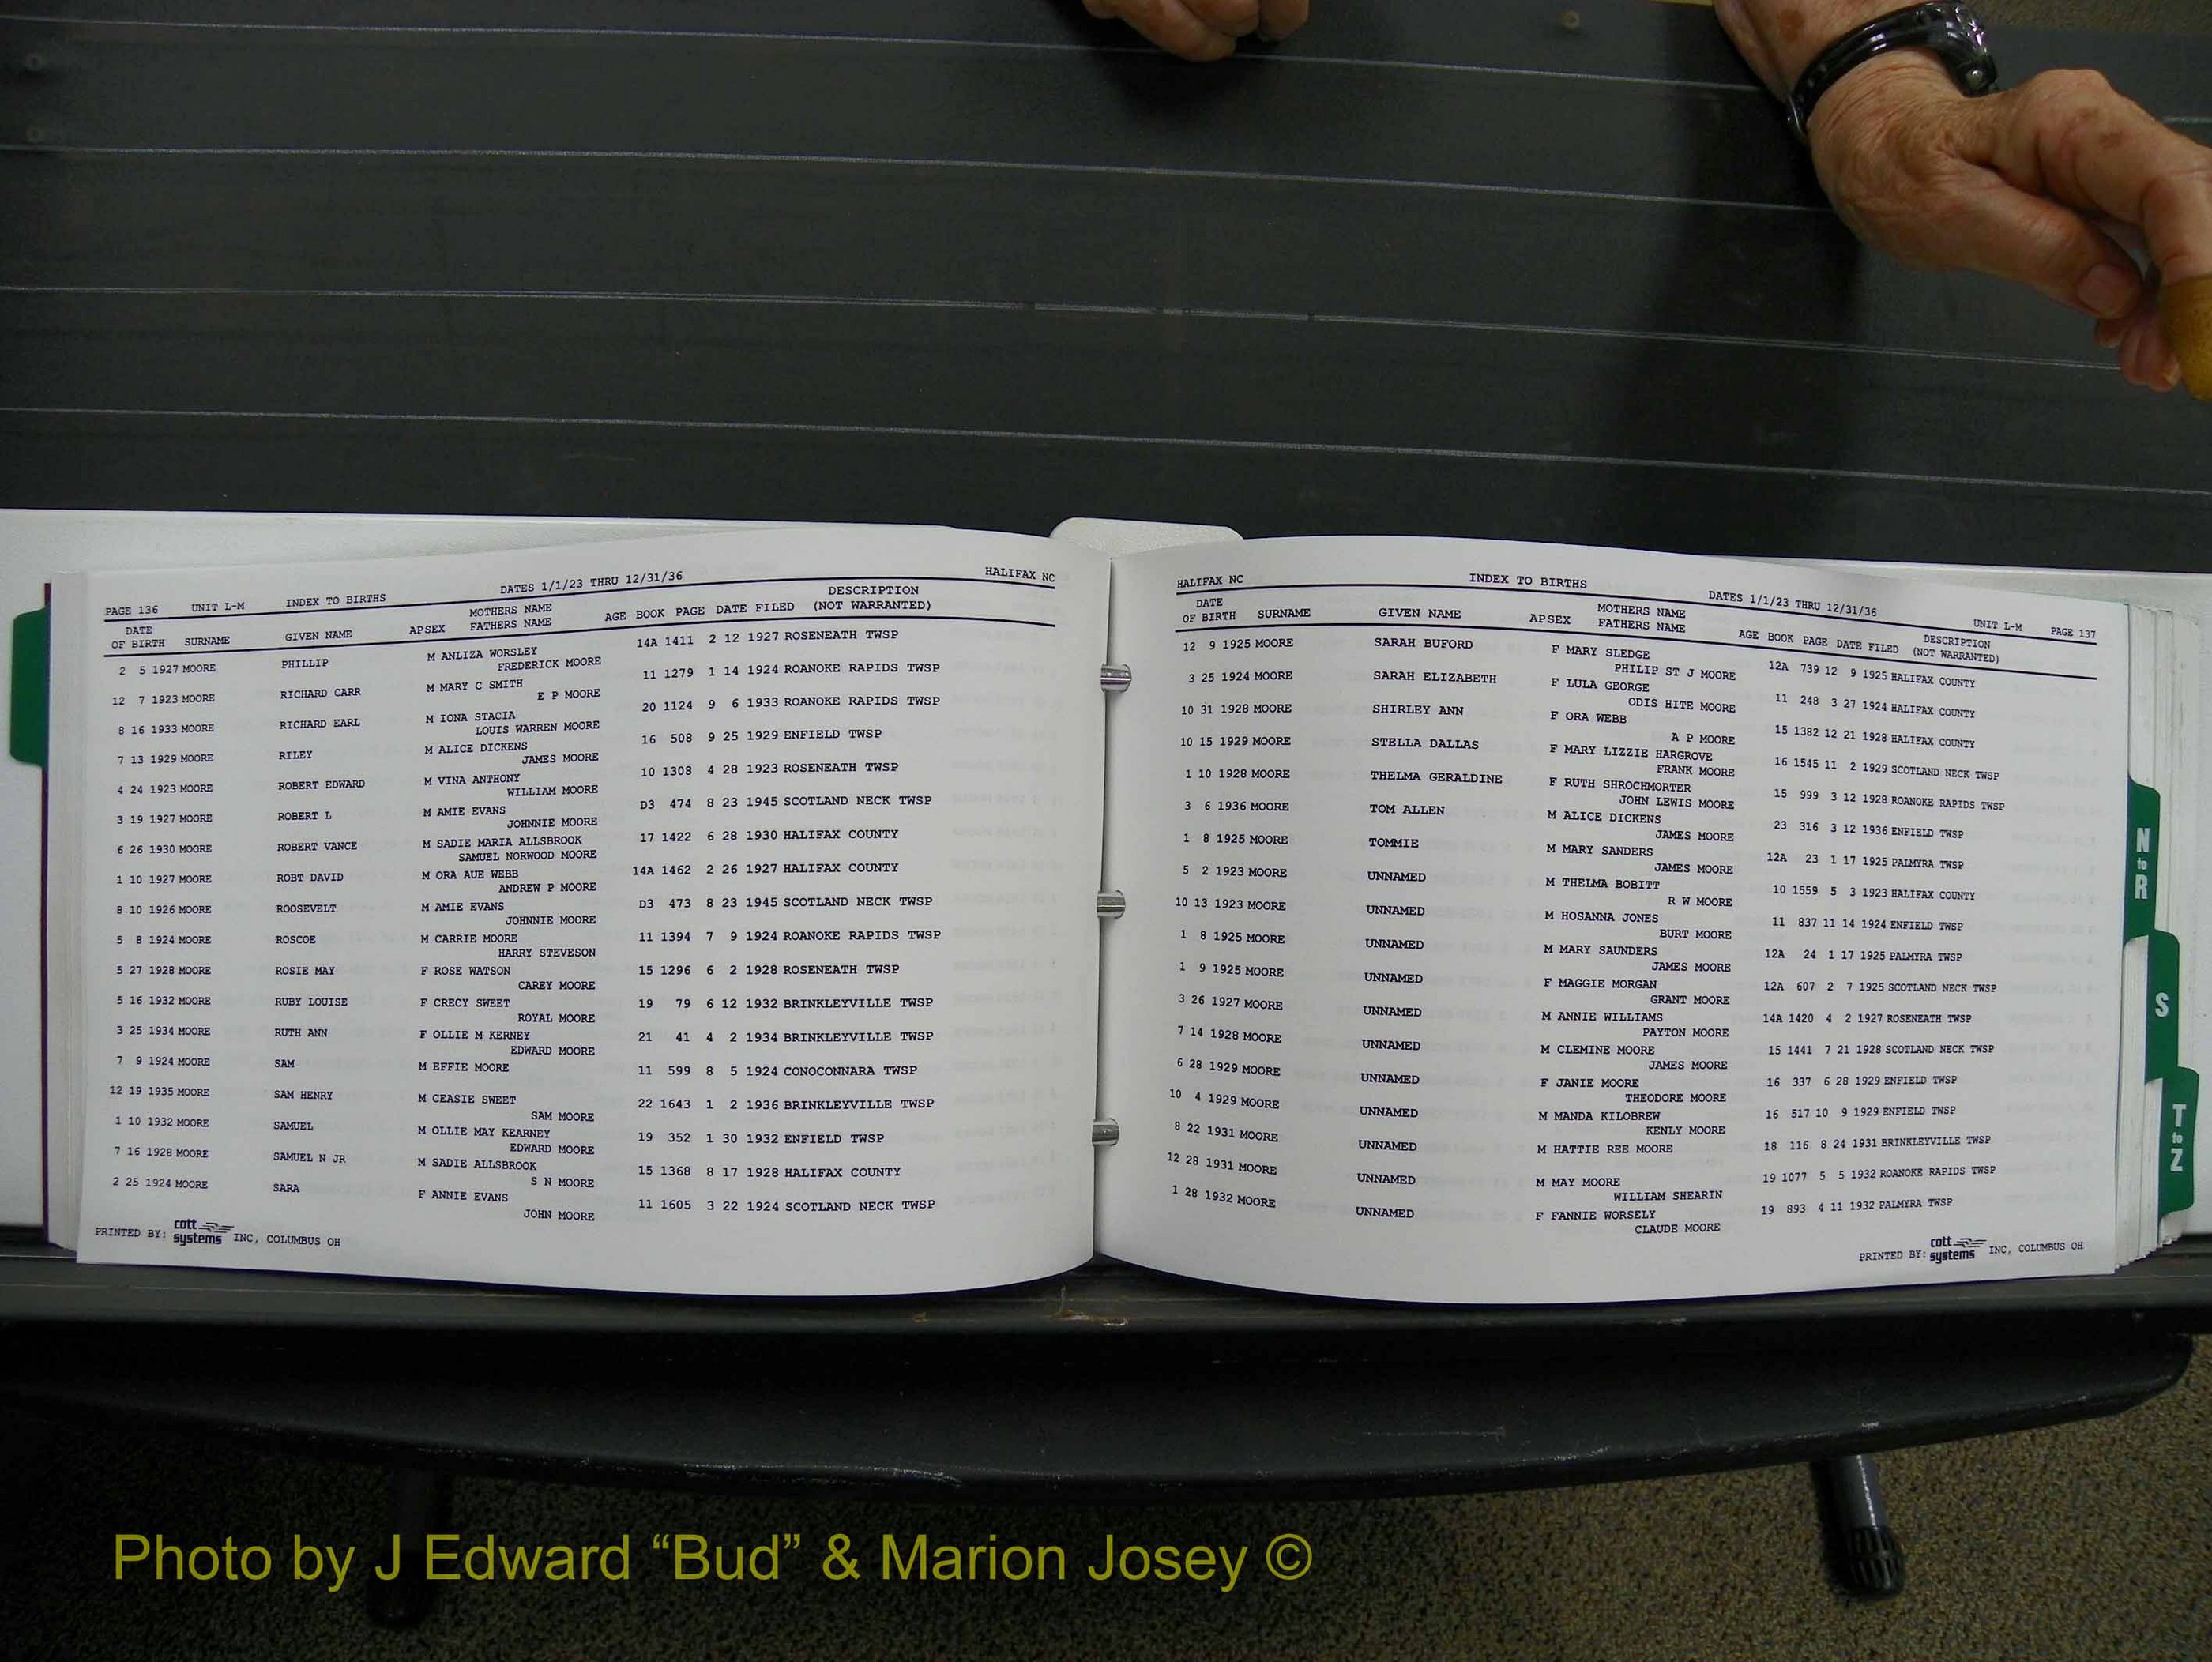 PAGE 136 UNIT L-M INDEX TO BIRTHS DATES 1/1/23 THRU 12/31/36 HALIFAX NC
DATE OF BIRTH SURNAME GIVEN NAME APSEX MOTHERS NAME FATHERS NAME AGE BOOK PAGE DATE FILED DESCRIPTION (NOT WARRANTED)
2 5 1927 MOORE PHILLIP M ANLIZA WORSLEY 14A 1411 2 12 1927 ROSENEATH TWSP
FREDERICK MOORE
12 7 1923 MOORE RICHARD CARR M MARY C SMITH 11 1279 1 14 1924 ROANOKE RAPIDS TWSP
E P MOORE
8 16 1933 MOORE RICHARD EARL M IONA STACIA 20 1124 9 6 1933 ROANOKE RAPIDS TWSP
LOUIS WARREN MOORE
7 13 1929 MOORE RILEY M ALICE DICKENS 16 508 9 25 1929 ENFIELD TWSP
JAMES MOORE
4 24 1923 MOORE ROBERT EDWARD M VINA ANTHONY 10 1308 4 28 1923 ROSENEATH TWSP
WILLIAM MOORE
3 19 1927 MOORE ROBERT L M AMIE EVANS D3 474 8 23 1945 SCOTLAND NECK TWSP
JOHNNIE MOORE
6 26 1930 MOORE ROBERT VANCE M SADIE MARIA ALLSBROOK 17 1422 6 28 1930 HALIFAX COUNTY
SAMUEL NORWOOD MOORE
1 10 1927 MOORE ROBT DAVID M ORA AUE WEBB 14A 1462 2 26 1927 HALIFAX COUNTY
ANDREW P MOORE
8 10 1926 MOORE ROOSEVELT M AMIE EVANS D3 473 8 23 1945 SCOTLAND NECK TWSP
JOHNNIE MOORE
5 8 1924 MOORE ROSCOE M CARRIE MOORE 11 1394 7 9 1924 ROANOKE RAPIDS TWSP
HARRY STEVESON
5 27 1928 MOORE ROSIE MAY F ROSE WATSON 15 1296 6 2 1928 ROSENEATH TWSP
CAREY MOORE
5 16 1932 MOORE RUBY LOUISE F CRECY SWEET 19 79 6 12 1932 BRINKLEYVILLE TWSP
ROYAL MOORE
3 25 1934 MOORE RUTH ANN F OLLIE M KERNEY 21 41 4 2 1934 BRINKLEYVILLE TWSP
EDWARD MOORE
7 9 1924 MOORE SAM M EFFIE MOORE 11 599 8 5 1924 CONOCONNARA TWSP
12 19 1935 MOORE SAM HENRY M CEASIE SWEET 22 1643 1 2 1936 BRINKLEYVILLE TWSP
SAM MOORE
1 10 1932 MOORE SAMUEL M OLLIE MAY KEARNEY 19 352 1 30 1932 ENFIELD TWSP
EDWARD MOORE
7 16 1928 MOORE SAMUEL N JR M SADIE ALLSBROOK 15 1368 8 17 1928 HALIFAX COUNTY
S N MOORE
2 25 1924 MOORE SARA F ANNIE EVANS 11 1605 3 22 1924 SCOTLAND NECK TWSP
JOHN MOORE
PRINTED BY: cott systems INC, COLUMBUS OH
HALIFAX NC INDEX TO BIRTHS DATES 1/1/23 THRU 12/31/36 UNIT L-M PAGE 137
DATE OF BIRTH SURNAME GIVEN NAME APSEX MOTHERS NAME FATHERS NAME AGE BOOK PAGE DATE FILED DESCRIPTION (NOT WARRANTED)
12 9 1925 MOORE SARAH BUFORD F MARY SLEDGE 12A 739 12 9 1925 HALIFAX COUNTY
PHILIP ST J MOORE
3 25 1924 MOORE SARAH ELIZABETH F LULA GEORGE 11 248 3 27 1924 HALIFAX COUNTY
ODIS HITE MOORE
10 31 1928 MOORE SHIRLEY ANN F ORA WEBB 15 1382 12 21 1928 HALIFAX COUNTY
A P MOORE
10 15 1929 MOORE STELLA DALLAS F MARY LIZZIE HARGROVE 16 1545 11 2 1929 SCOTLAND NECK TWSP
FRANK MOORE
1 10 1928 MOORE THELMA GERALDINE F RUTH SHROCHMORTER 15 999 3 12 1928 ROANOKE RAPIDS TWSP
JOHN LEWIS MOORE
3 6 1936 MOORE TOM ALLEN M ALICE DICKENS 23 316 3 12 1936 ENFIELD TWSP
JAMES MOORE
1 8 1925 MOORE TOMMIE M MARY SANDERS 12A 23 1 17 1925 PALMYRA TWSP
JAMES MOORE
5 2 1923 MOORE UNNAMED M THELMA BOBITT 10 1559 5 3 1923 HALIFAX COUNTY
R W MOORE
10 13 1923 MOORE UNNAMED M HOSANNA JONES 11 837 11 14 1924 ENFIELD TWSP
BURT MOORE
1 8 1925 MOORE UNNAMED M MARY SAUNDERS 12A 24 1 17 1925 PALMYRA TWSP
JAMES MOORE
1 9 1925 MOORE UNNAMED F MAGGIE MORGAN 12A 607 2 7 1925 SCOTLAND NECK TWSP
GRANT MOORE
3 26 1927 MOORE UNNAMED M ANNIE WILLIAMS 14A 1420 4 2 1927 ROSENEATH TWSP
PAYTON MOORE
7 14 1928 MOORE UNNAMED M CLEMINE MOORE 15 1441 7 21 1928 SCOTLAND NECK TWSP
JAMES MOORE
6 28 1929 MOORE UNNAMED F JANIE MOORE 16 337 6 28 1929 ENFIELD TWSP
THEODORE MOORE
10 4 1929 MOORE UNNAMED M MANDA KILOBREW 16 517 10 9 1929 ENFIELD TWSP
KENLY MOORE
8 22 1931 MOORE UNNAMED M HATTIE REE MOORE 18 116 8 24 1931 BRINKLEYVILLE TWSP
12 28 1931 MOORE UNNAMED M MAY MOORE 19 1077 5 5 1932 ROANOKE RAPIDS TWSP
WILLIAM SHEARIN
1 28 1932 MOORE UNNAMED F FANNIE WORSELY 19 893 4 11 1932 PALMYRA TWSP
CLAUDE MOORE
PRINTED BY: cott systems INC, COLUMBUS OH
N to R
S
T to Z
Photo by J Edward “Bud” & Marion Josey ©